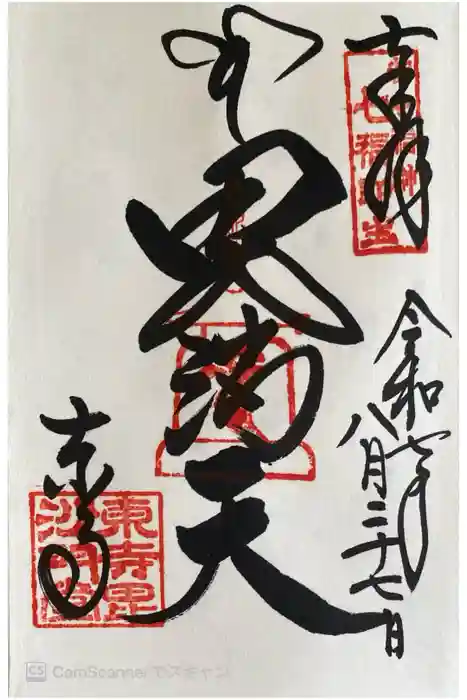 奉拝
令和七年
八月二十七日
毘沙門天
東寺
東寺毘
沙門堂
CS CamScanner でスキャン